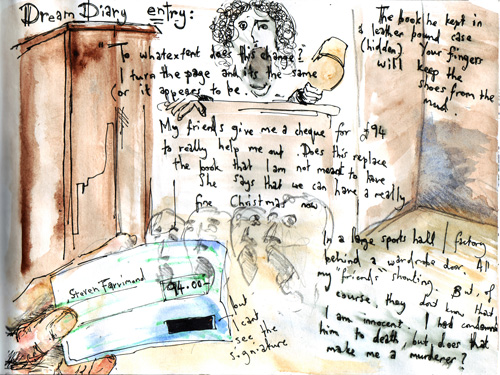 Dream Diary entry:
"To whatextent does this change?"
I turn the page and its the same
(or it appears to be.
The book he kept in
a leather bound case
(hidden) Your fingers
will keep the
shoes from the
muck.
My friends give me a cheque for £94
to really help me out. Does this replace
the book that I am not meant to have
She says that we can have a really
fine Christmas now
Steven Farriment
94.00-
but
I cant
see the
signature
In a large sports hall / factory
behind a wardrobe door. All
my "friends" shouting. But, of
course, they dont know that
I am innocent. I had condemned
him to death, but does that
make me a murderer?